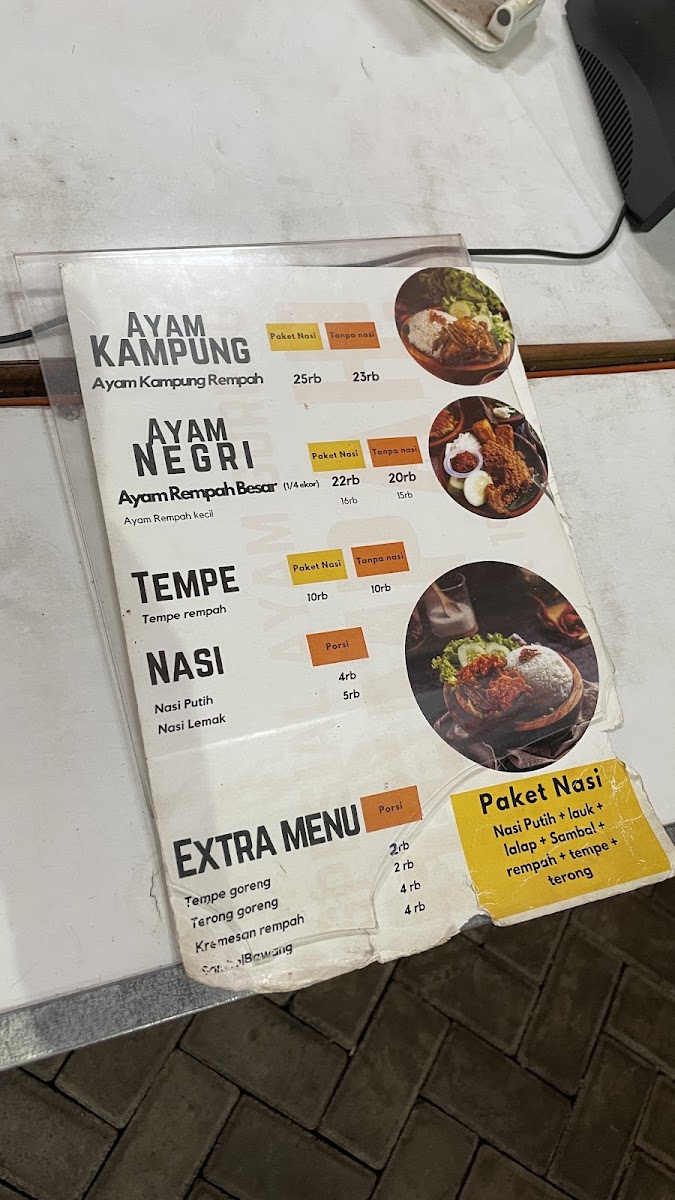 AYAM
KAMPUNG
Paket Nasi Tanpa nasi
Ayam Kampung Rempah 25rb 23rb
AYAM
NEGRI
Paket Nasi Tanpa nasi
Ayam Rempah Besar (1/4 ekor) 22rb 20rb
Ayam Rempah kecil 16rb 15rb
TEMPE
Paket Nasi Tanpa nasi
Tempe rempah 10rb 10rb
NASI
Porsi
Nasi Putih 4rb
Nasi Lemak 5rb
EXTRA MENU
Porsi
Tempe goreng 2rb
Terong goreng 2 rb
Kremesan rempah 4 rb
SambalBawang 4 rb
Paket Nasi
Nasi Putih + lauk +
lalap + Sambal +
rempah + tempe +
terong